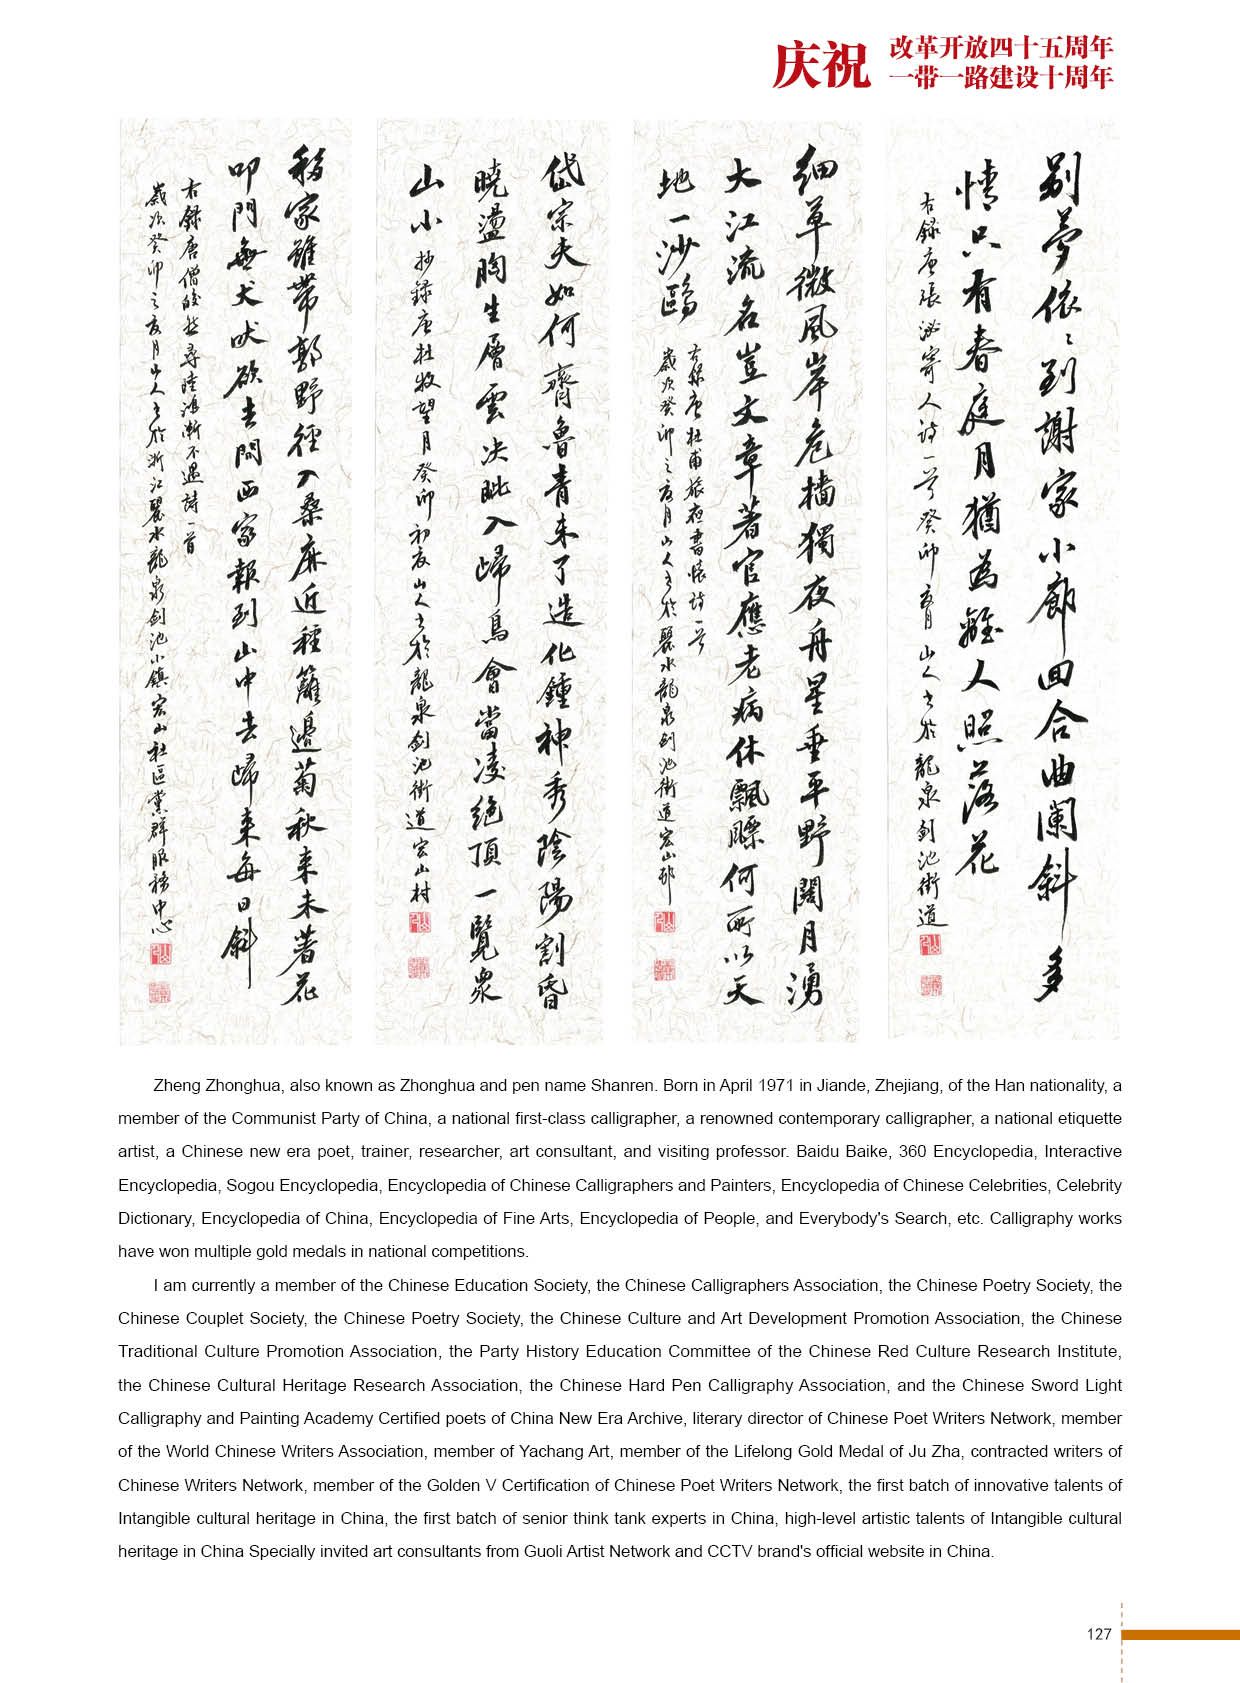 庆祝
改革开放四十五周年
一带一路建设十周年
别夢依〻到謝家小廊回合曲阑斜多
情只有春庭月猶為離人照落花
右録唐張泌寄人詩一首癸卯夏月山人书於龍泉剑池街道
细草微風岸危檣獨夜舟星垂平野闊月湧
大江流名豈文章著官應老病休飄飄何所以天
地一沙鷗
右録唐杜甫旅夜書懷詩一首
歲次癸卯之夏月山人书於麗水龍泉剑池街道宏山邨
岱宗夫如何齊魯青未了造化鍾神秀陰陽割昏
曉盪胸生層雲决眦入歸鳥會當凌絕頂一覽眾
山小
抄録唐杜牧望月癸卯初夏山人书於龍泉剑池街道宏山村
移家雖帶郭野徑入桑麻近種籬邊菊秋来未著花
叩門無犬吠欲去問西家報到山中去歸来每日斜
右録唐僧皎然尋陸鴻漸不遇詩一首
歲次癸卯之夏月山人书於浙江麗水龍泉剑池小鎮宏山社區黨群服務中心
Zheng Zhonghua, also known as Zhonghua and pen name Shanren. Born in April 1971 in Jiande, Zhejiang, of the Han nationality, a
member of the Communist Party of China, a national first-class calligrapher, a renowned contemporary calligrapher, a national etiquette
artist, a Chinese new era poet, trainer, researcher, art consultant, and visiting professor. Baidu Baike, 360 Encyclopedia, Interactive
Encyclopedia, Sogou Encyclopedia, Encyclopedia of Chinese Calligraphers and Painters, Encyclopedia of Chinese Celebrities, Celebrity
Dictionary, Encyclopedia of China, Encyclopedia of Fine Arts, Encyclopedia of People, and Everybody's Search, etc. Calligraphy works
have won multiple gold medals in national competitions.
I am currently a member of the Chinese Education Society, the Chinese Calligraphers Association, the Chinese Poetry Society, the
Chinese Couplet Society, the Chinese Poetry Society, the Chinese Culture and Art Development Promotion Association, the Chinese
Traditional Culture Promotion Association, the Party History Education Committee of the Chinese Red Culture Research Institute,
the Chinese Cultural Heritage Research Association, the Chinese Hard Pen Calligraphy Association, and the Chinese Sword Light
Calligraphy and Painting Academy Certified poets of China New Era Archive, literary director of Chinese Poet Writers Network, member
of the World Chinese Writers Association, member of Yachang Art, member of the Lifelong Gold Medal of Ju Zha, contracted writers of
Chinese Writers Network, member of the Golden V Certification of Chinese Poet Writers Network, the first batch of innovative talents of
Intangible cultural heritage in China, the first batch of senior think tank experts in China, high-level artistic talents of Intangible cultural
heritage in China Specially invited art consultants from Guoli Artist Network and CCTV brand's official website in China.
127